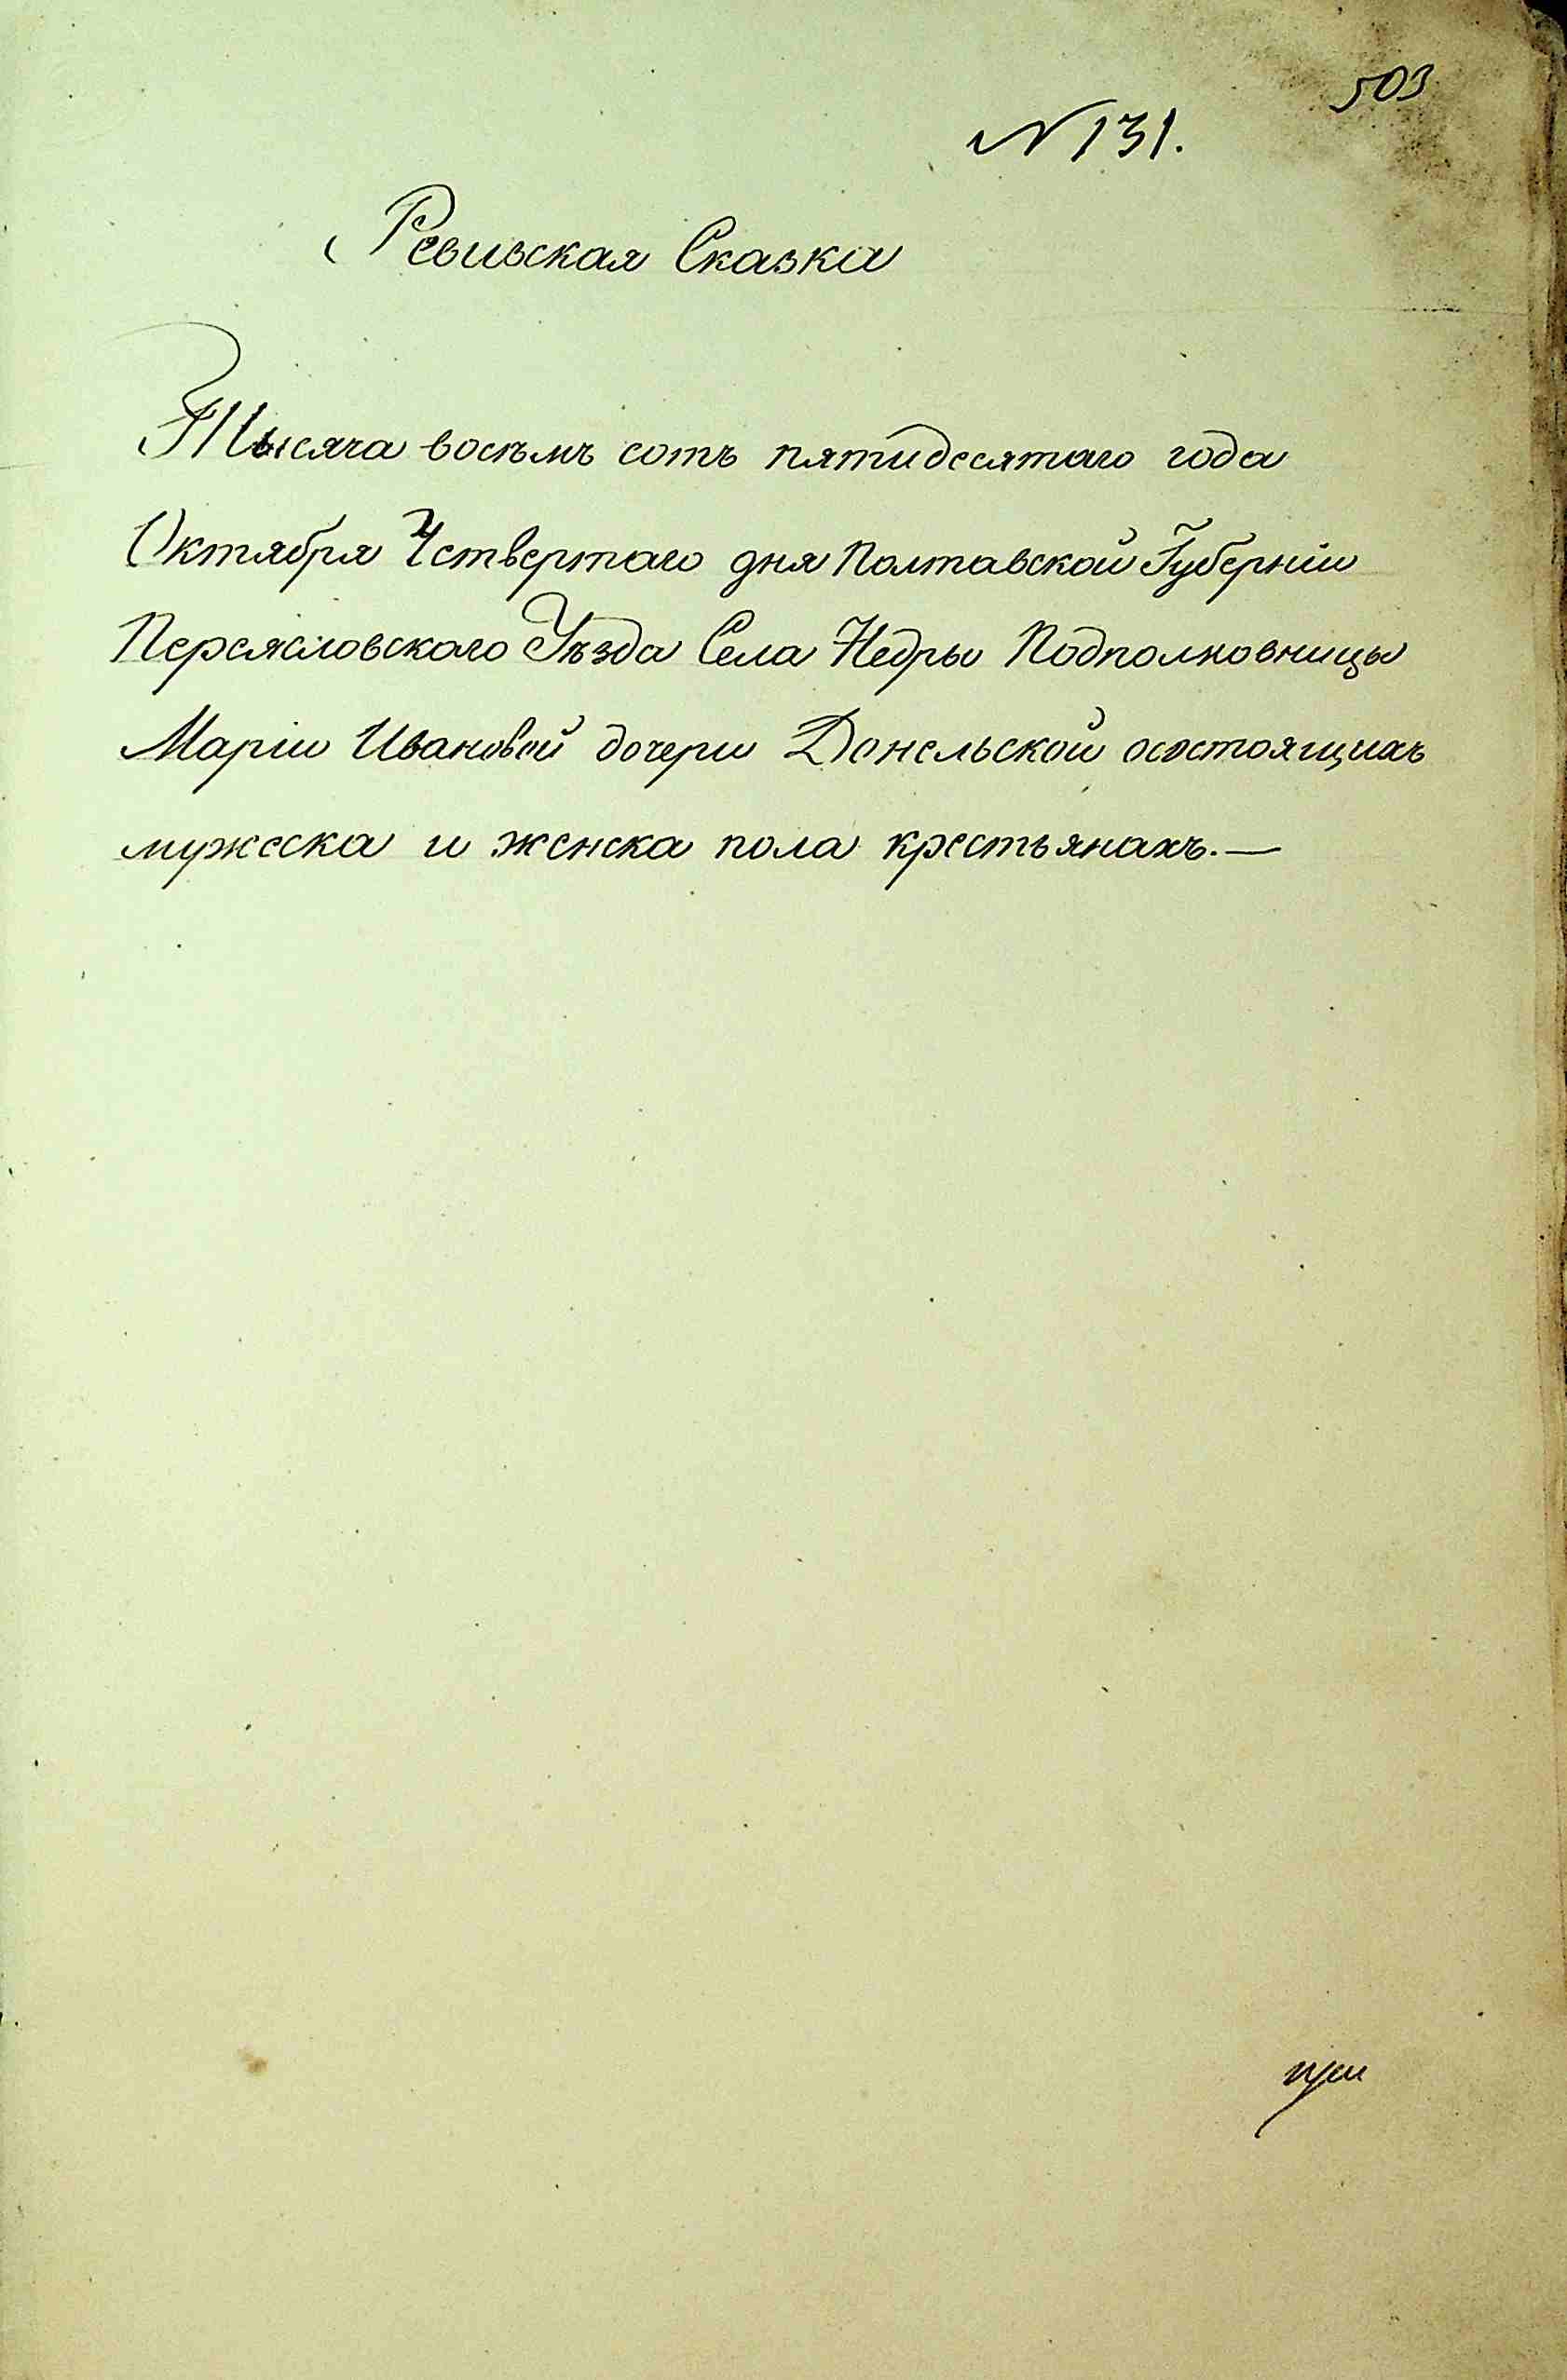 503
N 131.
Ревизская Сказка
Тысяча восемь сотъ пятидесятаго года
Октября Четвертаго дня Полтавской Губерніи
Переясловского Уѣзда Села Недры Подполковницы
Маріи Ивановой дочери Донельской осостоящихъ
мужеска и женска пола крестьянахъ.—
при